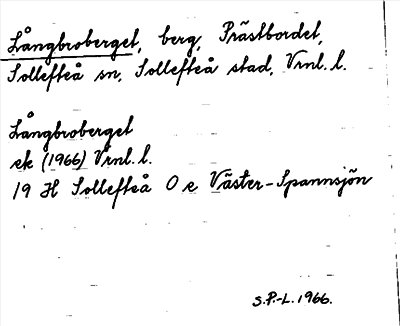 Långbroberget, berg, Prästbordet,
Sollefteå sn, Sollefteå stad, Vrnl. l.
Långbroberget
ek (1966) Vrnl. l.
19 H Sollefteå O e Väster-Spannsjön
S.P.-L. 1966.